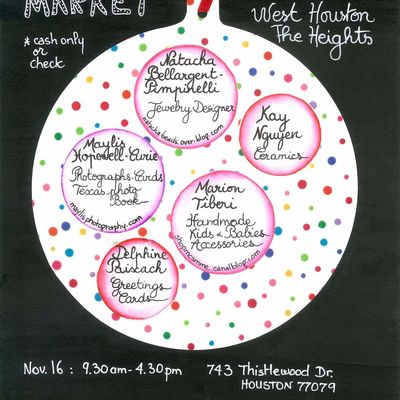 MARKET
* cash only
or
check
West Houston
The Heights
Natacha
Bellargent-
Pimpinelli
Jewelry Designer
natachabeads.over-blog.com
Kay
Nguyen
Ceramics
Maylis
Hopewell-Curie
Photographs-Cards
Texas photo
Book
maylisphotography.com
Marion
Tiberi
Handmade
Kids & Babies
Accessories
shopmcomme.canalblog.com
Delphine
Paixach
Greetings
Cards
Nov. 16 : 9.30am - 4.30pm
743 Thistlewood Dr.
HOUSTON 77079